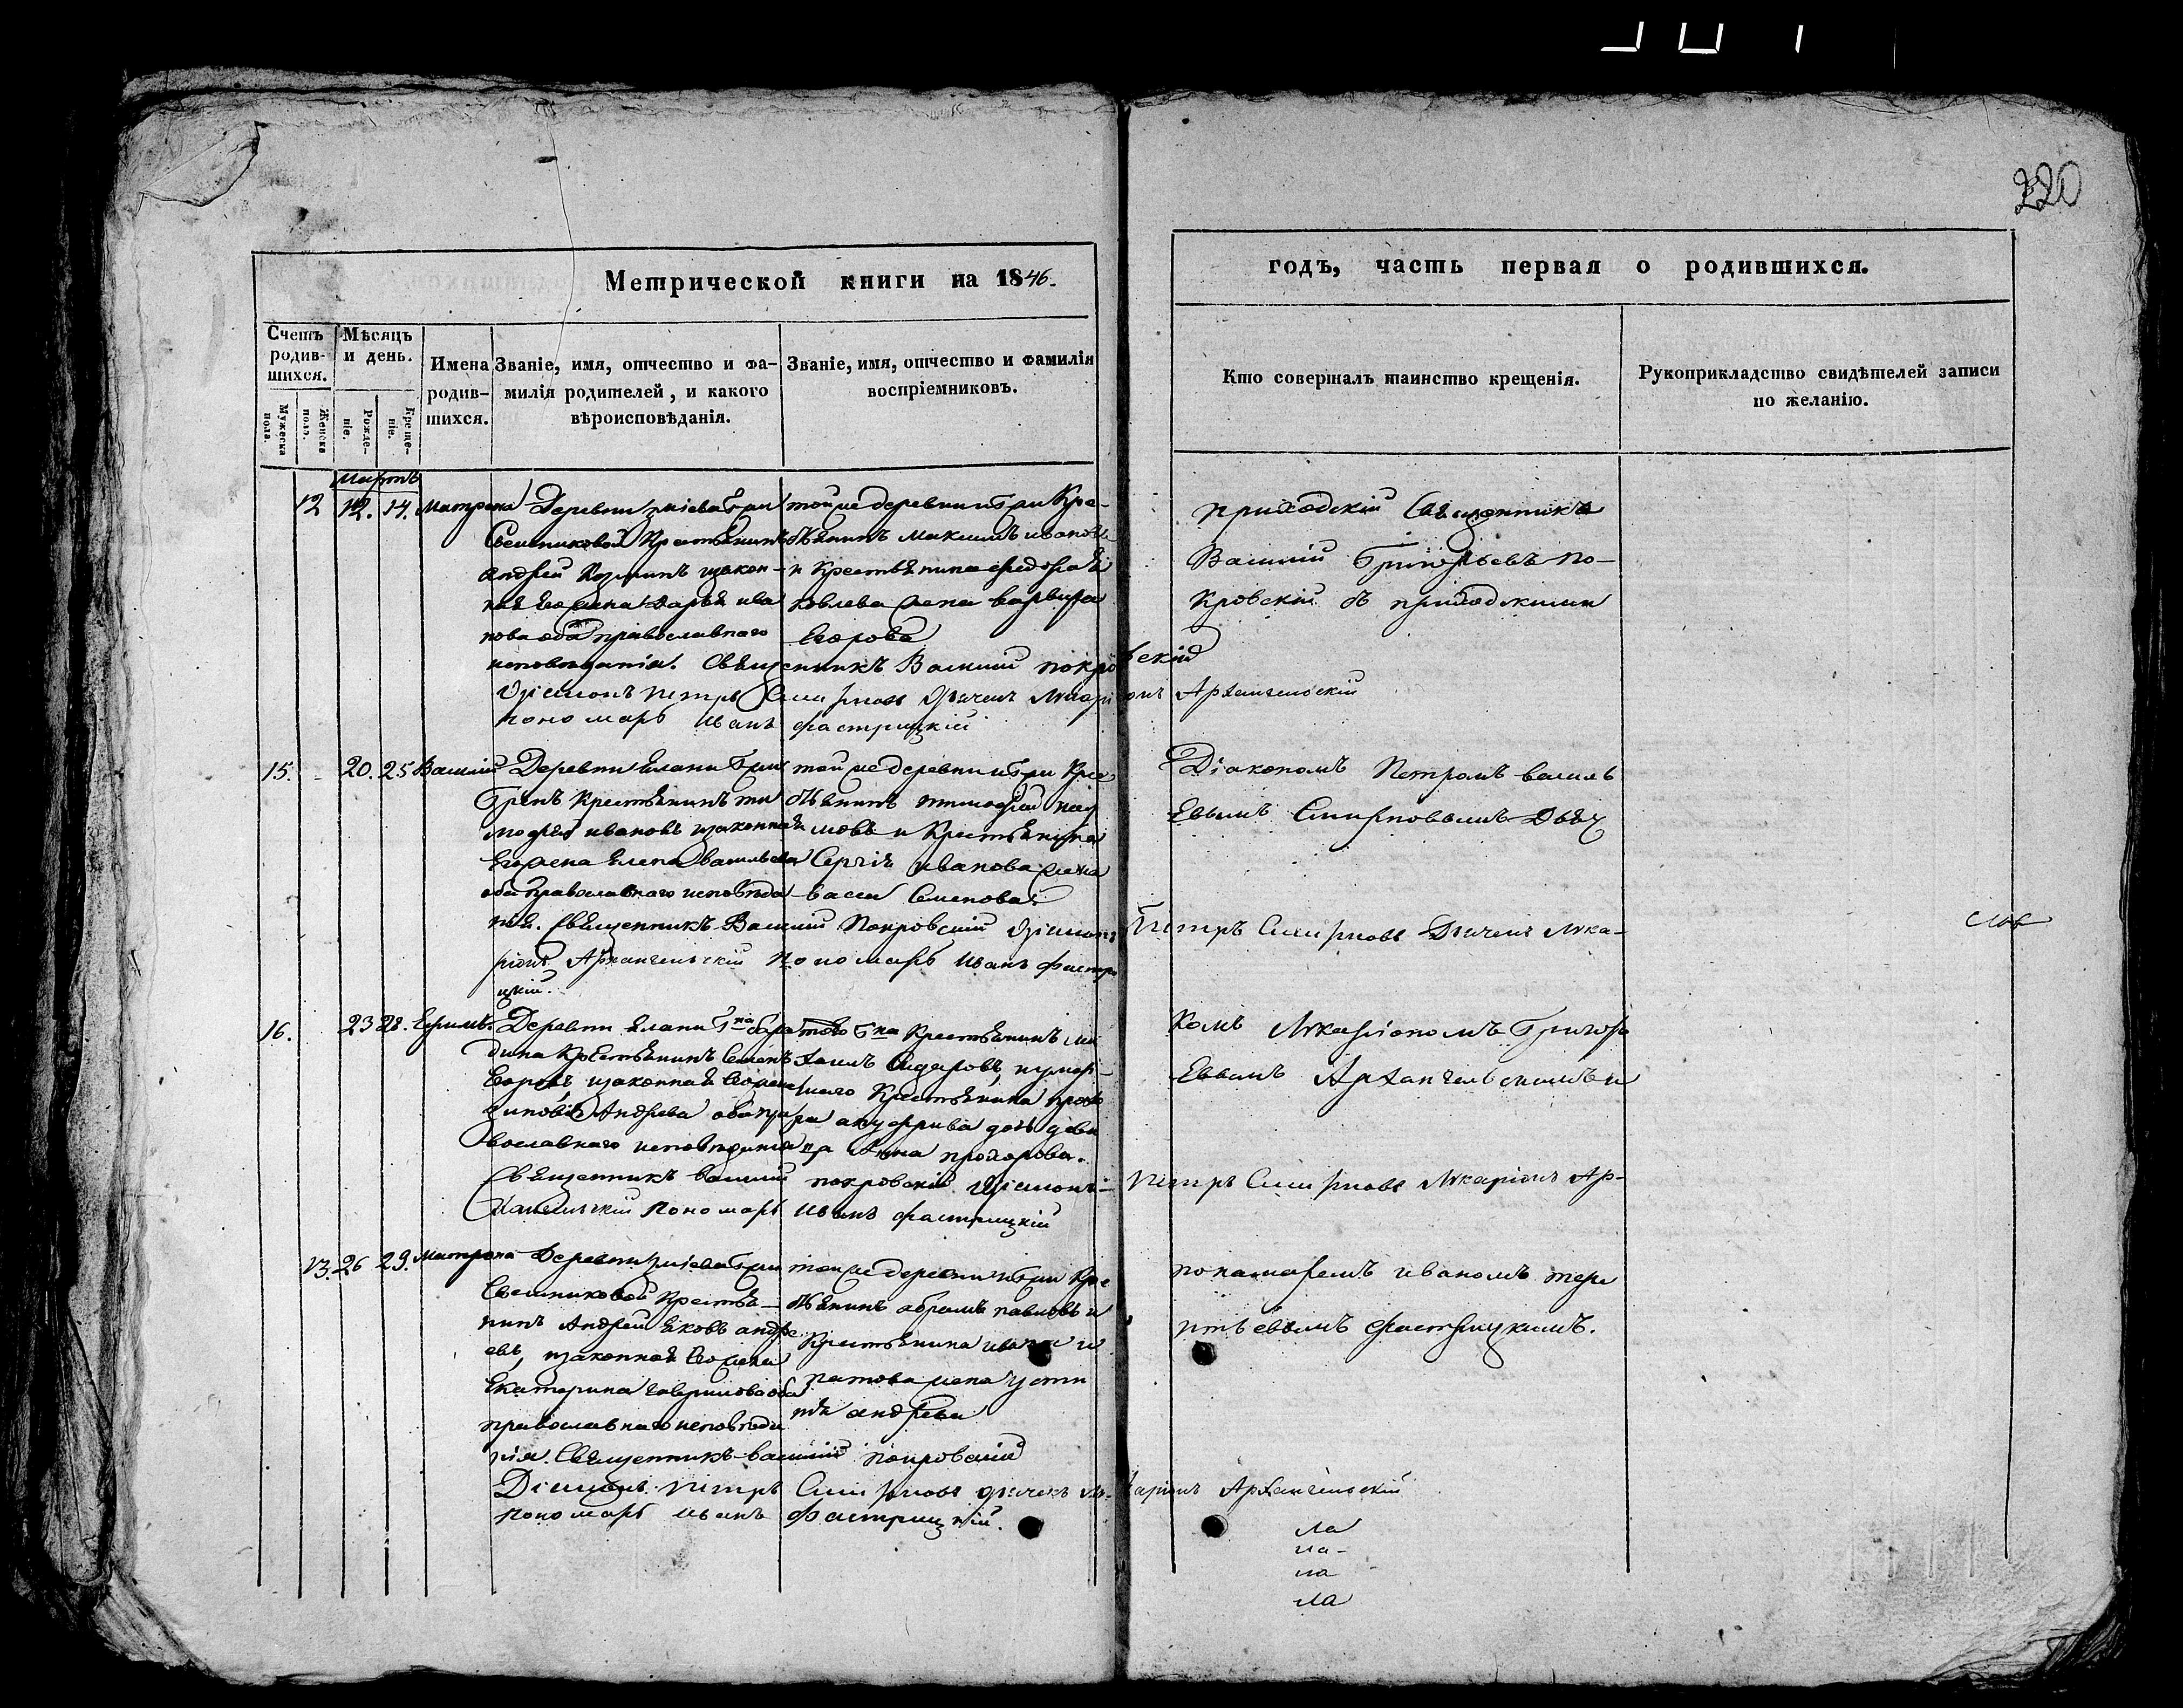 220
Метрической книги на 1846.
годъ, часть первая о родившихся.
Счетъ родив-шихся.
Мѣсяцъ и день.
Имена родив-шихся.
Званіе, имя, отчество и фа-милія родителей, и какого вѣроисповѣданія.
Званіе, имя, отчество и фамилія воспріемниковъ.
Кто совершалъ таинство крещенія.
Рукоприкладство свидѣтелей записи по желанію.
Мужеска пола.
Женска полъ.
Рожде-ніе.
Креще-ніе.
Мартъ
12 12. 14. Матрона
Деревни
Свешниковой Крестьянинъ
Андрей законная
его жена Дарья ива
нова оба православнаго
исповѣданія. Священникъ Василій Покровскій
Діаконъ Петръ Смирновъ Дьячекъ Иларіонъ Архангельскій
Пономарь Иванъ Фастрицкій
той же деревни Кре-
стьянинъ Максимъ Ивановъ
и Крестьянина Федора Я
ковлева жена Варвара
Егорова
приходскій Священникъ
Василій Григорьевъ По-
кровскій съ приходскими
15. 20. 25 Василій
Деревни Елани
Крестьянинъ Ти
мофей Ивановъ законная
его жена Елена Васильева
оба православнаго исповѣда
нія. Священникъ Василій Покровскій Діаконъ Петръ Смирновъ Дьячекъ Илла-
ріонъ Архангельскій Пономарь Иванъ Фастри
цкій.
той же деревни Кре
стьянинъ Тимофей
и Крестьянина
Сергія Иванова жена
Васса Семенова
Діакономъ Петромъ Василь
евымъ Смирновымъ Дьяч
16. 23 28. Ефимъ.
Деревни Елани Г-на
Крестьянинъ Семенъ
Егоровъ, законная его жена
Зиновья Андреева оба пра
вославнаго исповѣданія
Священникъ Василій Покровскій Діаконъ Петръ Смирновъ Иларіонъ Ар-
хангельскій Пономарь Иванъ Фастрицкій
того Г-на Крестьянинъ Ми
хаилъ Сидоровъ, и умер-
шаго Крестьянина Прохо
ра дочь деви
ца Анна Прохорова.
комъ Илларіономъ Григорь
евымъ Архангельскимъ и
13. 26 29. Матрона
Деревни
Свешниковой Крестья-
нинъ Андрей Яковъ Андре
евъ, законная его жена
Екатерина Гаврилова оба
православнаго исповѣда
нія. Священникъ Василій Покровскій
Діаконъ Петръ Смирновъ Дьячекъ Иларіонъ Архангельскій
Пономарь Иванъ Фастрицкій.
той же деревни Кре
стьянинъ Абрамъ Павловъ и
Крестьянина Ивана И
патова жена Усти
нья Андреева
пономаремъ Иваномъ Тере
нтьевымъ Фастрицкимъ.
ла
ла-
ла
ла